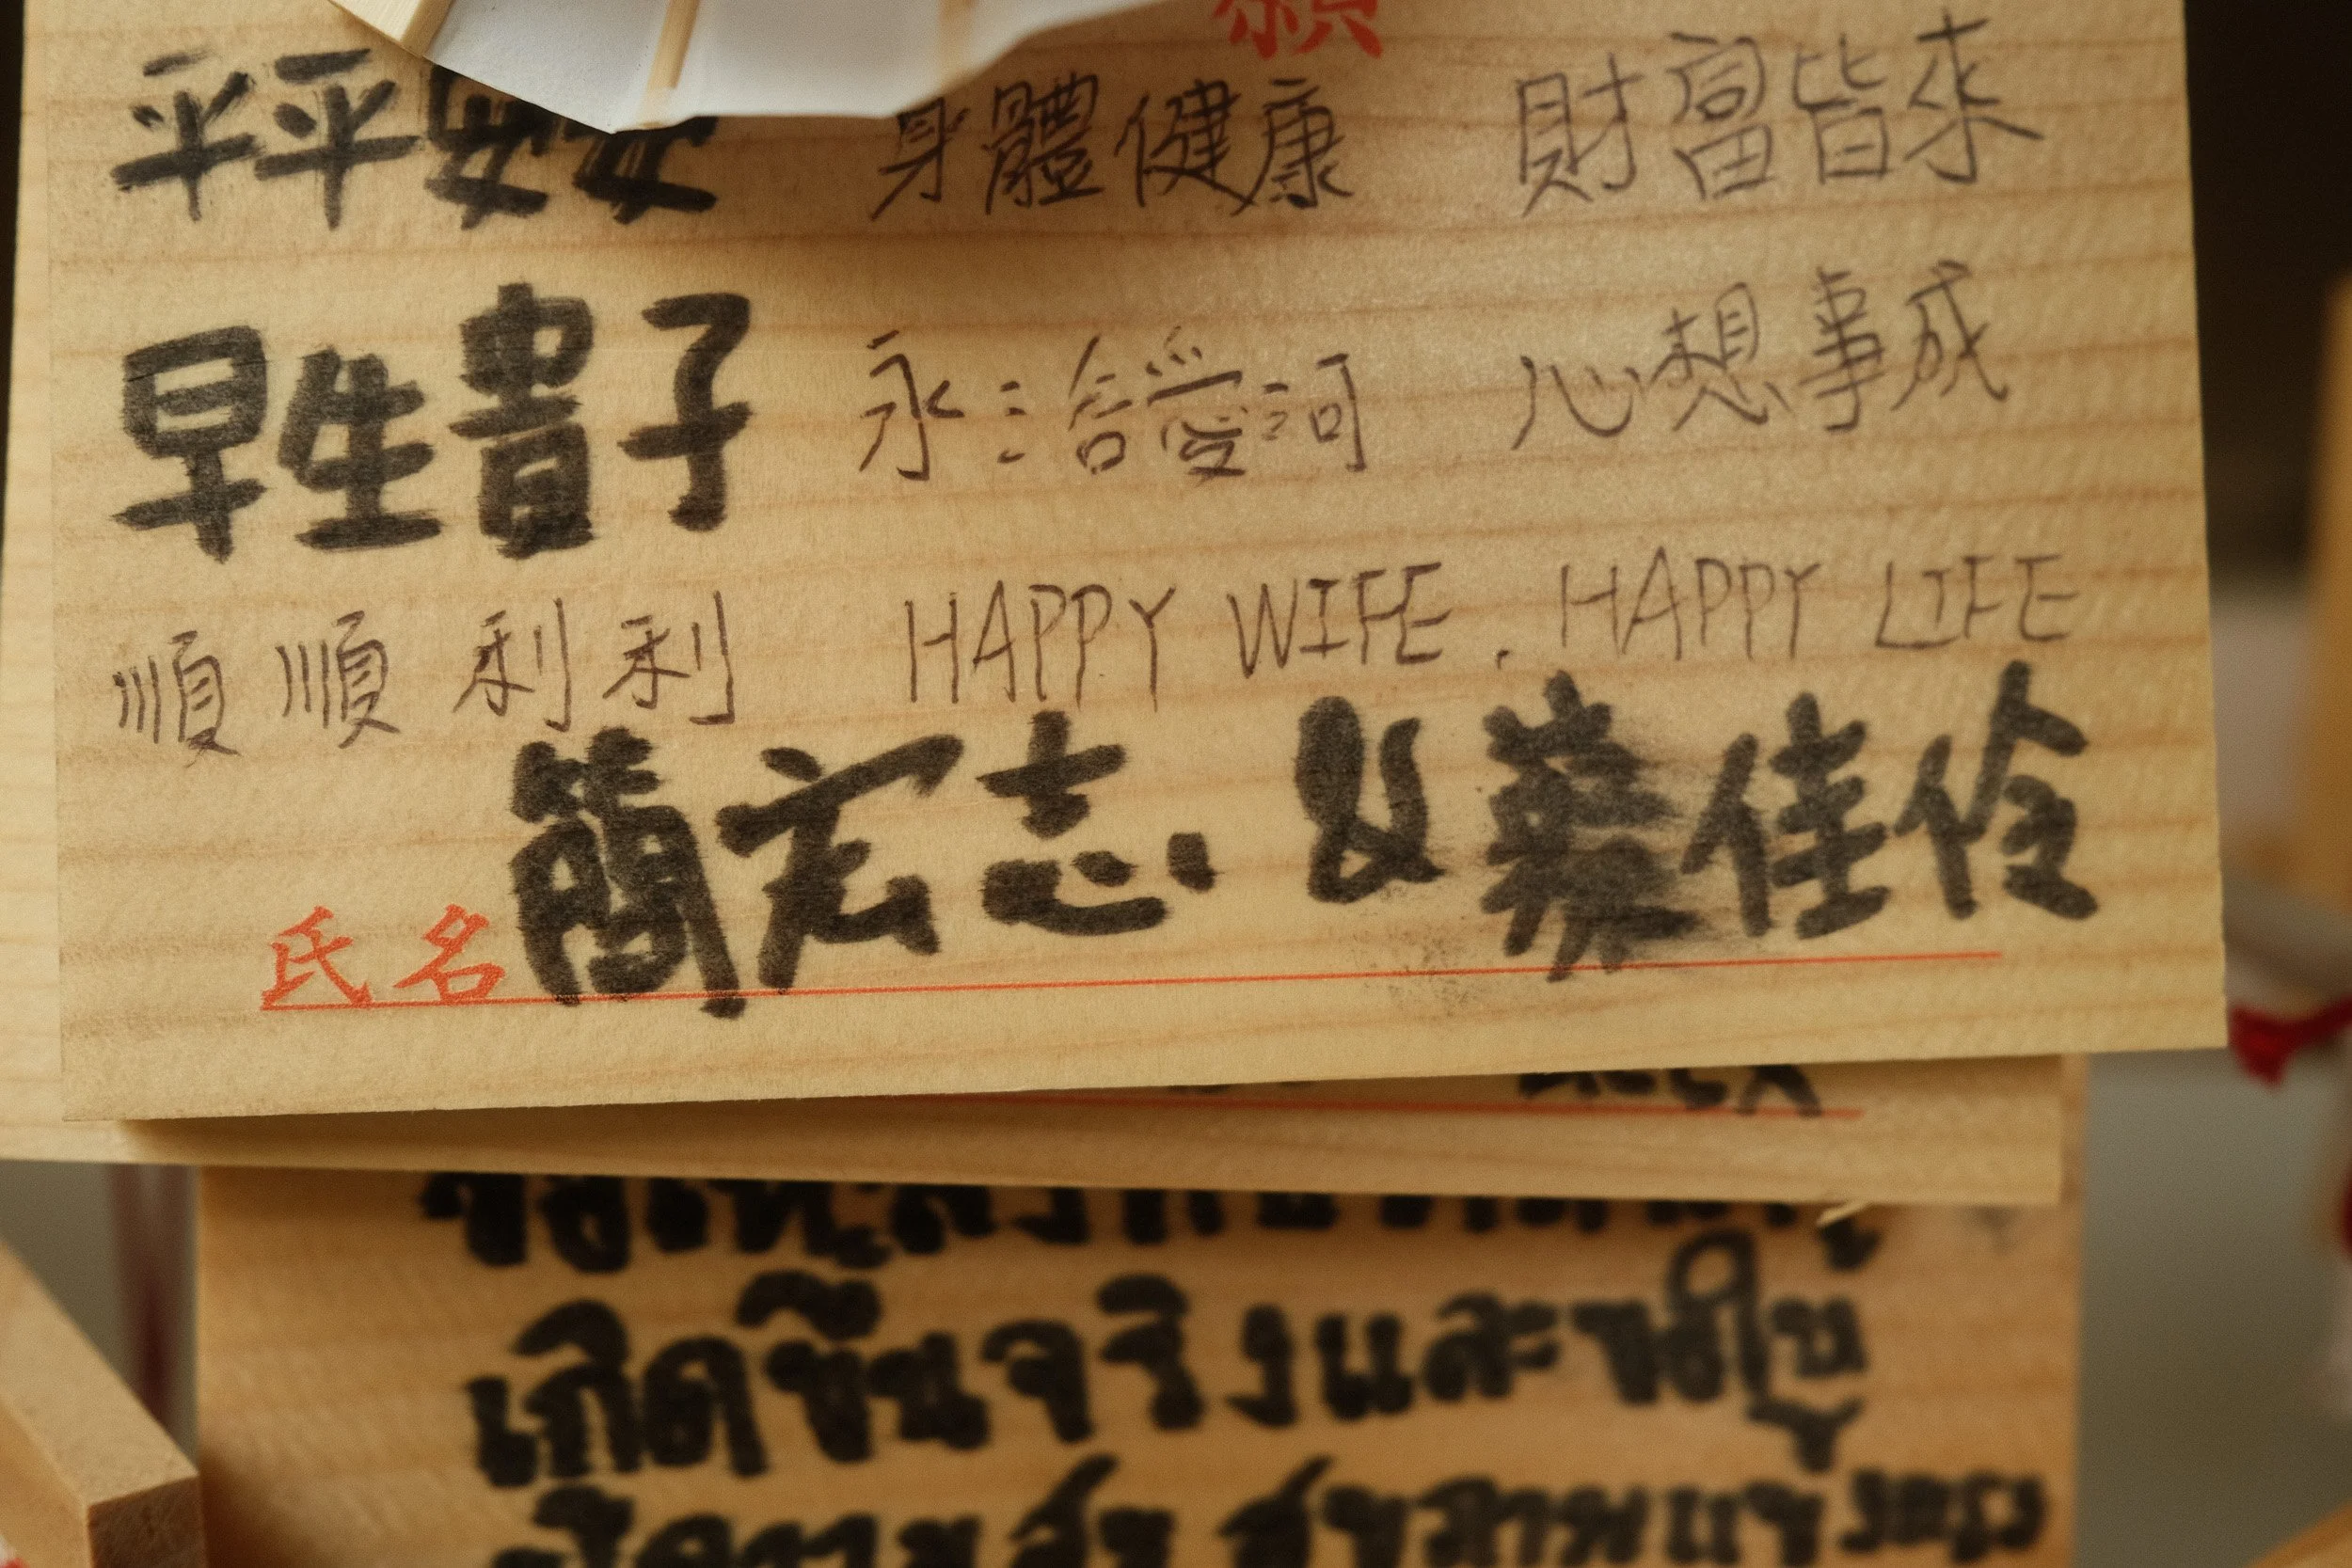 願
平平安安 身體健康 財富皆來
早生貴子 永浴愛河 心想事成
順順利利 HAPPY WIFE . HAPPY LIFE
氏名 簡宏志 & 蔡佳伶
เกิดขึ้นจริงและขอให้